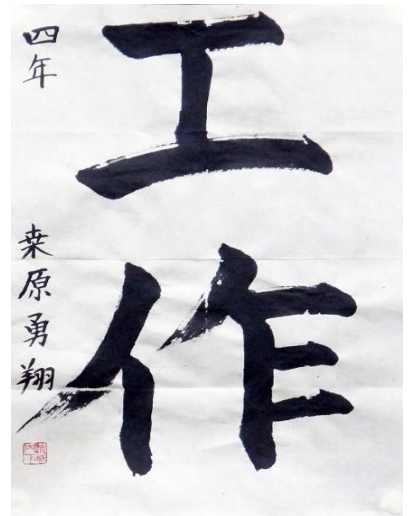 工作
四年
桒原勇翔